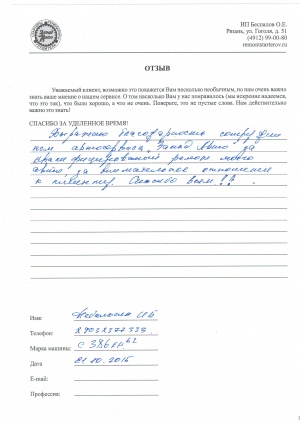 ИП Беспалов О.Е.
Рязань, ул. Гоголя, д. 51
(4912) 99-00-80
remontstarterov.ru
ОТЗЫВ
Уважаемый клиент, возможно это покажется Вам несколько необычным, но нам очень важно
знать ваше мнение о нашем сервисе. О том насколько Вам у нас понравилось (мы искренне надеемся,
что это так), что было хорошо, а что не очень. Поверьте, это не пустые слова. Нам действительно
важно это знать!
СПАСИБО ЗА УДЕЛЕННОЕ ВРЕМЯ!
Выражаю благодарность сотрудни
кам автосервиса за
квалифицированный ремонт моего
авто, за внимательное отношение
к клиенту. Спасибо всем!!
Имя:
Телефон:
Марка машины:
Дата 01.10.2015
E-mail:
Профессия: